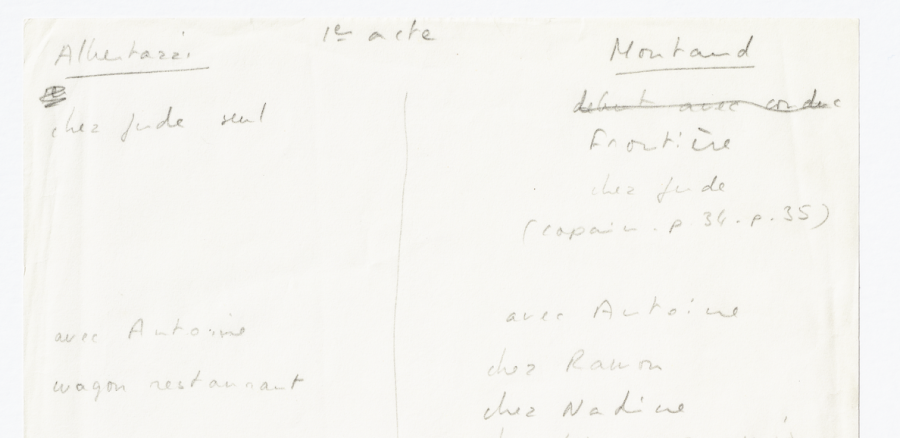 1er acte
Albertazzi
chez Jude seul
avec Antoine
wagon restaurant
Montand
début avec conduc
Frontière
chez Jude
(copain . p 34 . p . 35)
avec Antoine
chez Ramon
chez Nadine